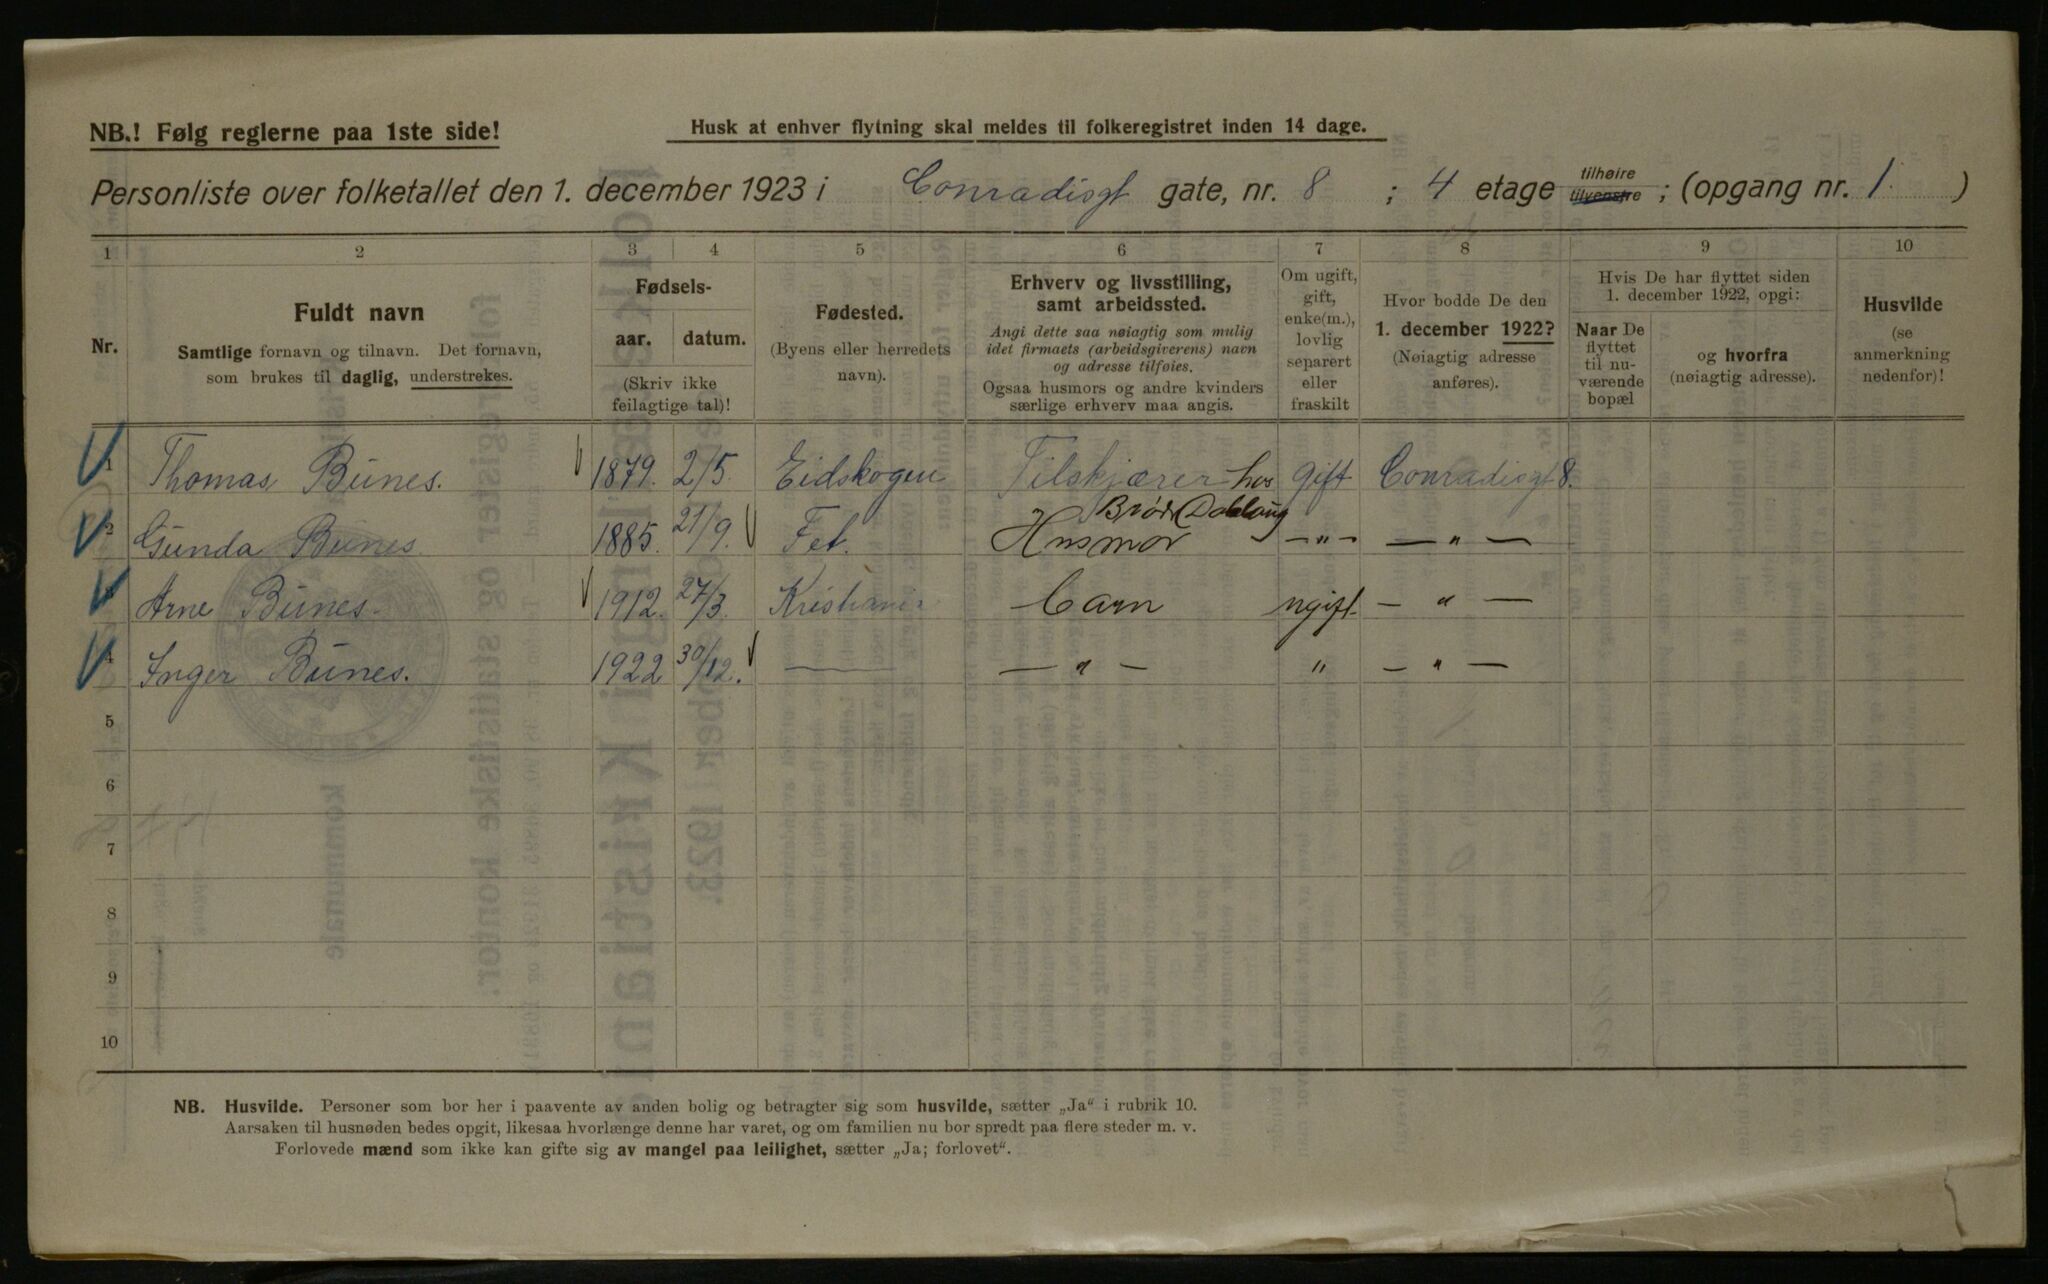 NB.! Følg reglerne paa 1ste side!
Husk at enhver flytning skal meldes til folkeregistret inden 14 dage.
Personliste over folketallet den 1. december 1923 i Conradisgt gate, nr. 8 ; 4 etage tilhøire tilvenstre ; (opgang nr. 1. )
1 2 3 4 5 6 7 8 9 10
Nr.
Fuldt navn
Samtlige fornavn og tilnavn. Det fornavn,
som brukes til daglig, understrekes.
Fødsels-
aar. datum.
(Skriv ikke
feilagtige tal)!
Fødested.
(Byens eller herredets
navn).
Erhverv og livsstilling,
samt arbeidssted.
Angi dette saa nøiagtig som mulig
idet firmaets (arbeidsgiverens) navn
og adresse tilføies.
Ogsaa husmors og andre kvinders
særlige erhverv maa angis.
Om ugift,
gift,
enke(m.),
lovlig
separert
eller
fraskilt
Hvor bodde De den
1. december 1922?
(Nøiagtig adresse
anføres).
Hvis De har flyttet siden
1. december 1922, opgi:
Naar De
flyttet
til nu-
værende
bopæl
og hvorfra
(nøiagtig adresse).
Husvilde
(se
anmerkning
nedenfor)!
1 Thomas Bünes. 1879. 2/5. Eidskogen Tilskjærer hos gift Conradisgt 8.
Brødr. Dobloug
2 Günda Bünes 1885. 21/9. Fet. Husmor —„— — „ —
3 Arne Bünes. 1912. 27/3. Kristiania Barn ugift — „ —
4 Inger Bünes. 1922 30/12. — — „ — „ — „ —
5
6
7
8
9
10
NB. Husvilde. Personer som bor her i paavente av anden bolig og betragter sig som husvilde, sætter „Ja“ i rubrik 10.
Aarsaken til husnøden bedes opgit, likesaa hvorlænge denne har varet, og om familien nu bor spredt paa flere steder m. v.
Forlovede mænd som ikke kan gifte sig av mangel paa leilighet, sætter „Ja; forlovet“.